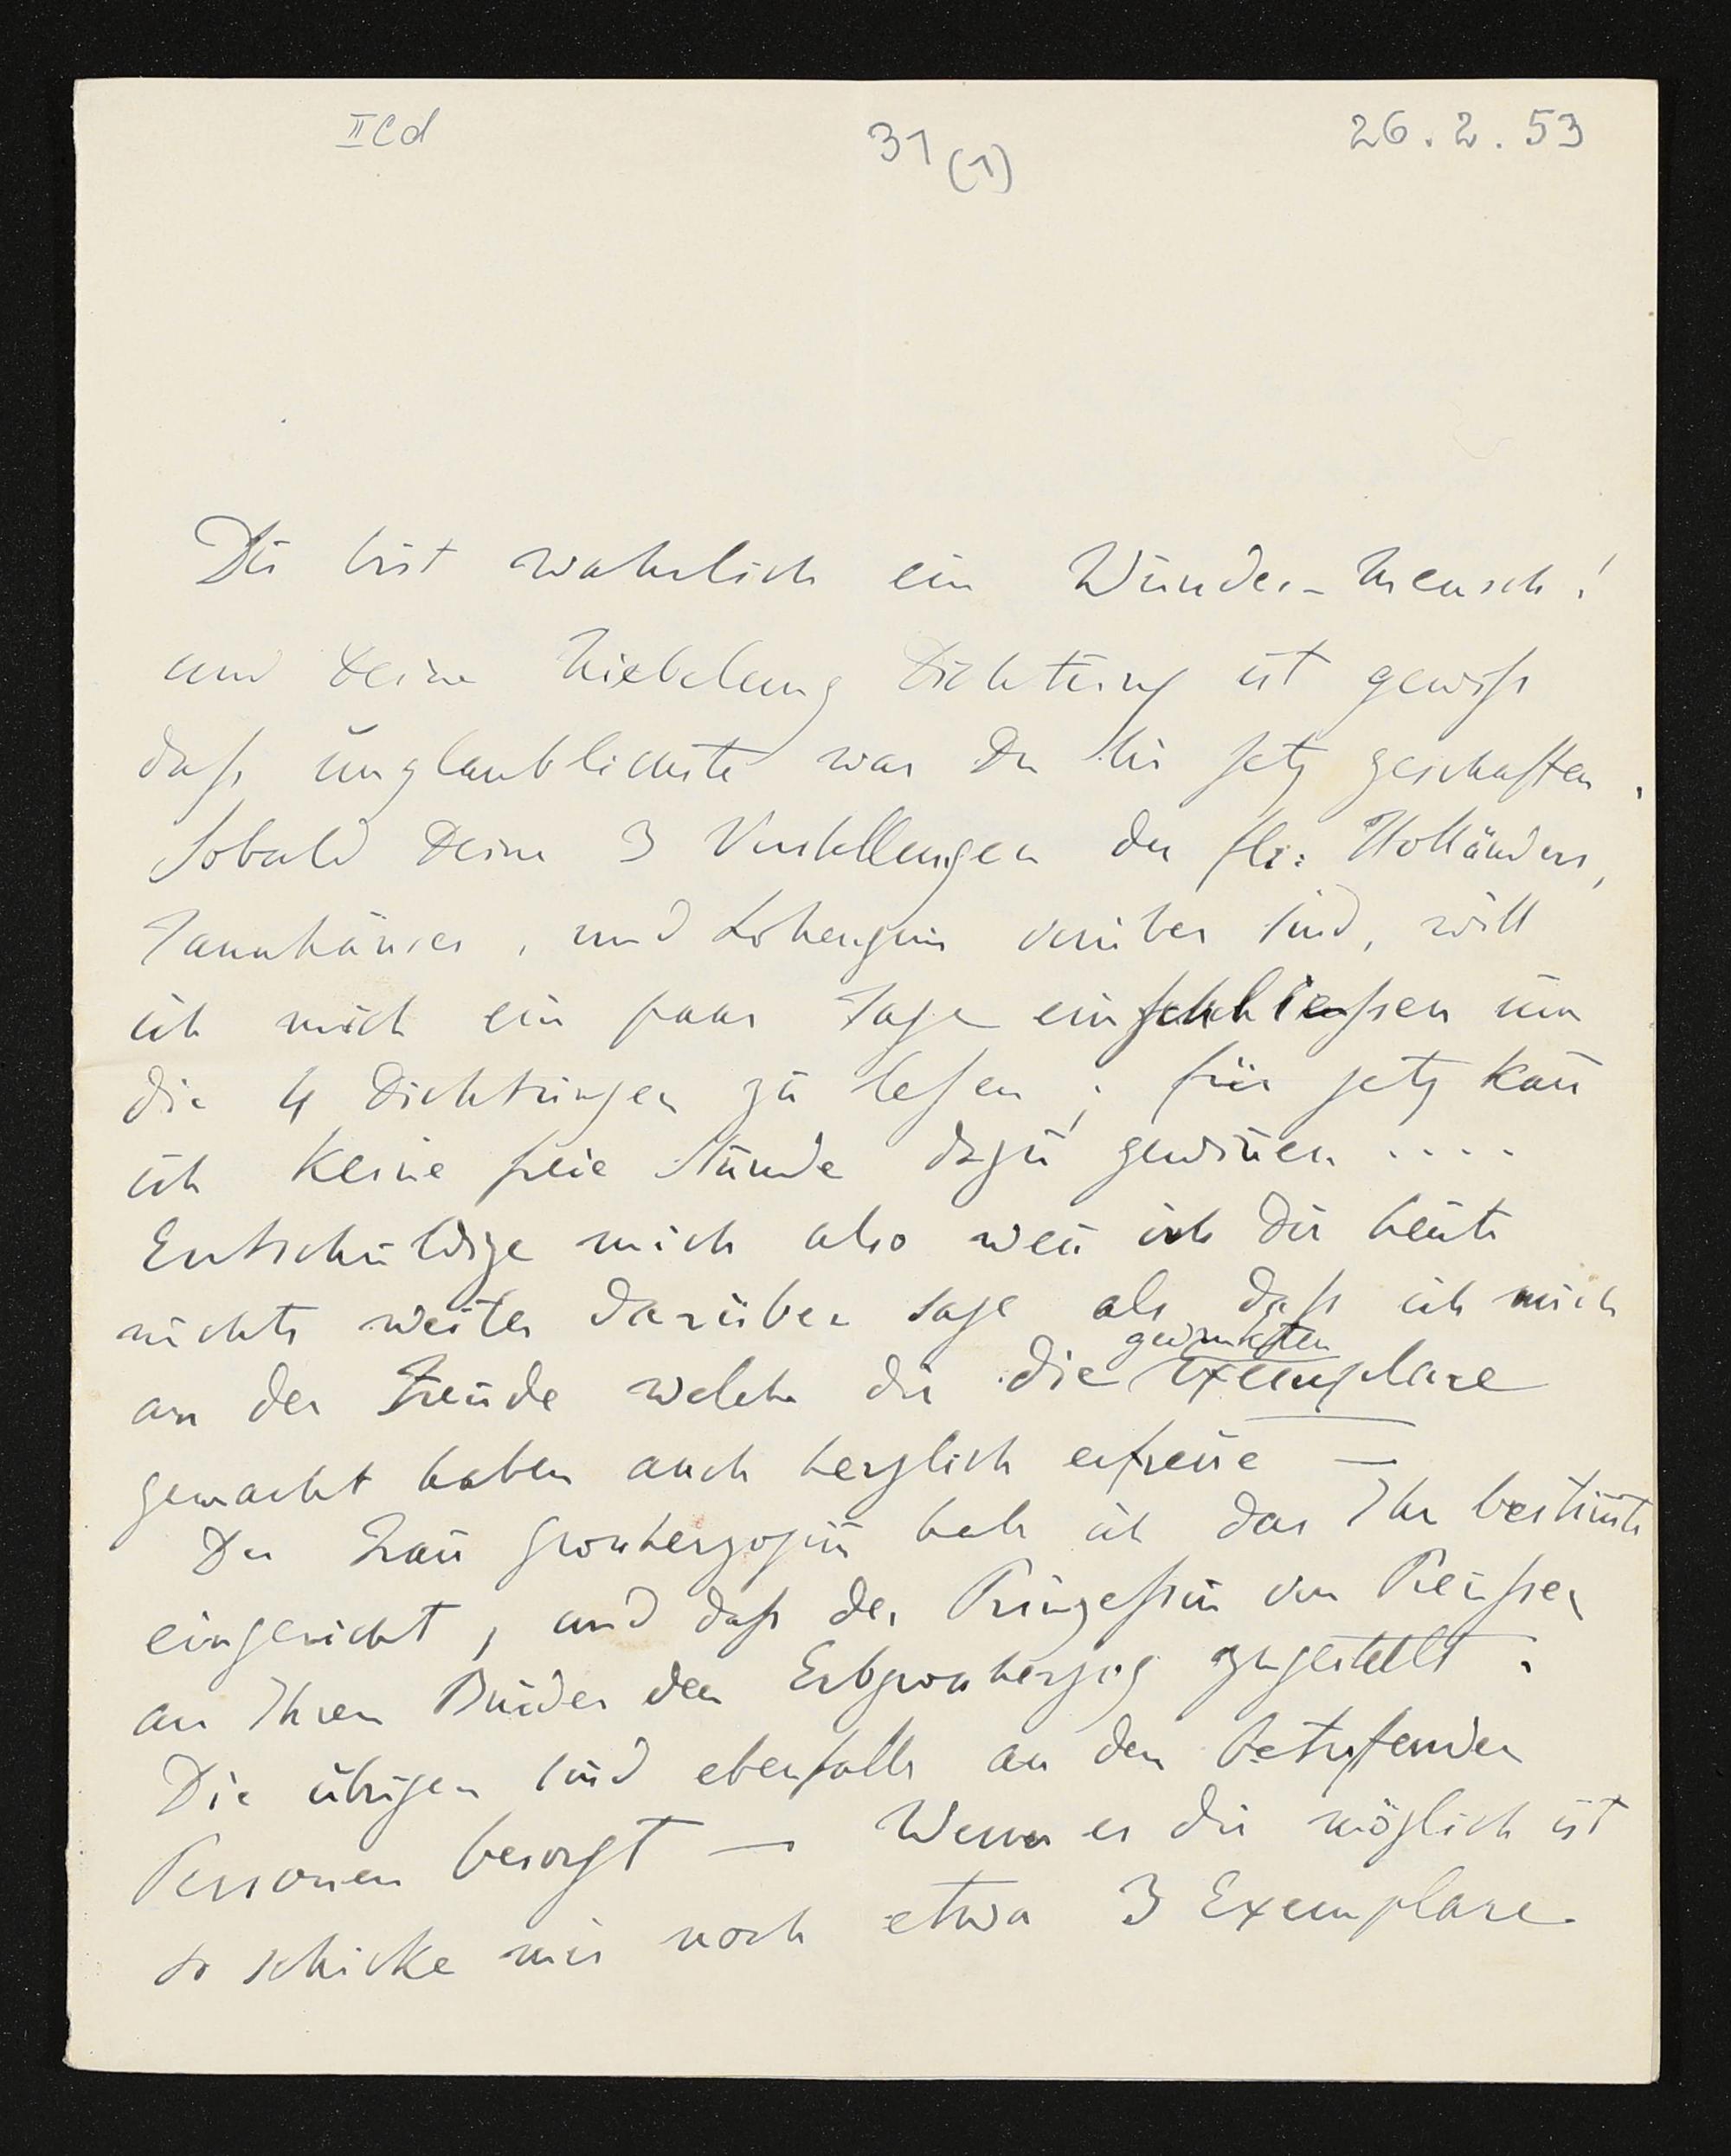 II C d
31 (1)
26.2.53
Du bist wahrlich ein Wunder-Mensch!
und Deine Niebelung Dichtung ist gewiß
daß unglaublichste was Du bis jetz geschaffen.
Sobald Deine 3 Vorstellungen des fli: Holländers,
Tannhäuser, und Lohengrin vorüber sind, will
ich mich ein paar Tage einschließen um
die 4 Dichtungen zu lesen; für jetz kan̄
ich keine freie Stunde dazu gewin̄en ....
Entschuldige mich also wen̄ ich Dir heute
nichts weiter darüber sage als daß ich mich
an der Freude welche dir die gedruckten Exemplare
gemacht haben auch herzlich erfreue —
Der Frau Grosherzogin̄ habe ich das Ihr bestim̄te
eingereicht, und daß der Prinzeßin̄ von Preußen
an Ihren Bruder den Erbgrosherzog zugestellt.
Die übrigen sind ebenfalls an den betrefenden
Personen besorgt — Wenn es dir möglich ist
so schicke mir noch etwa 3 Exemplare.